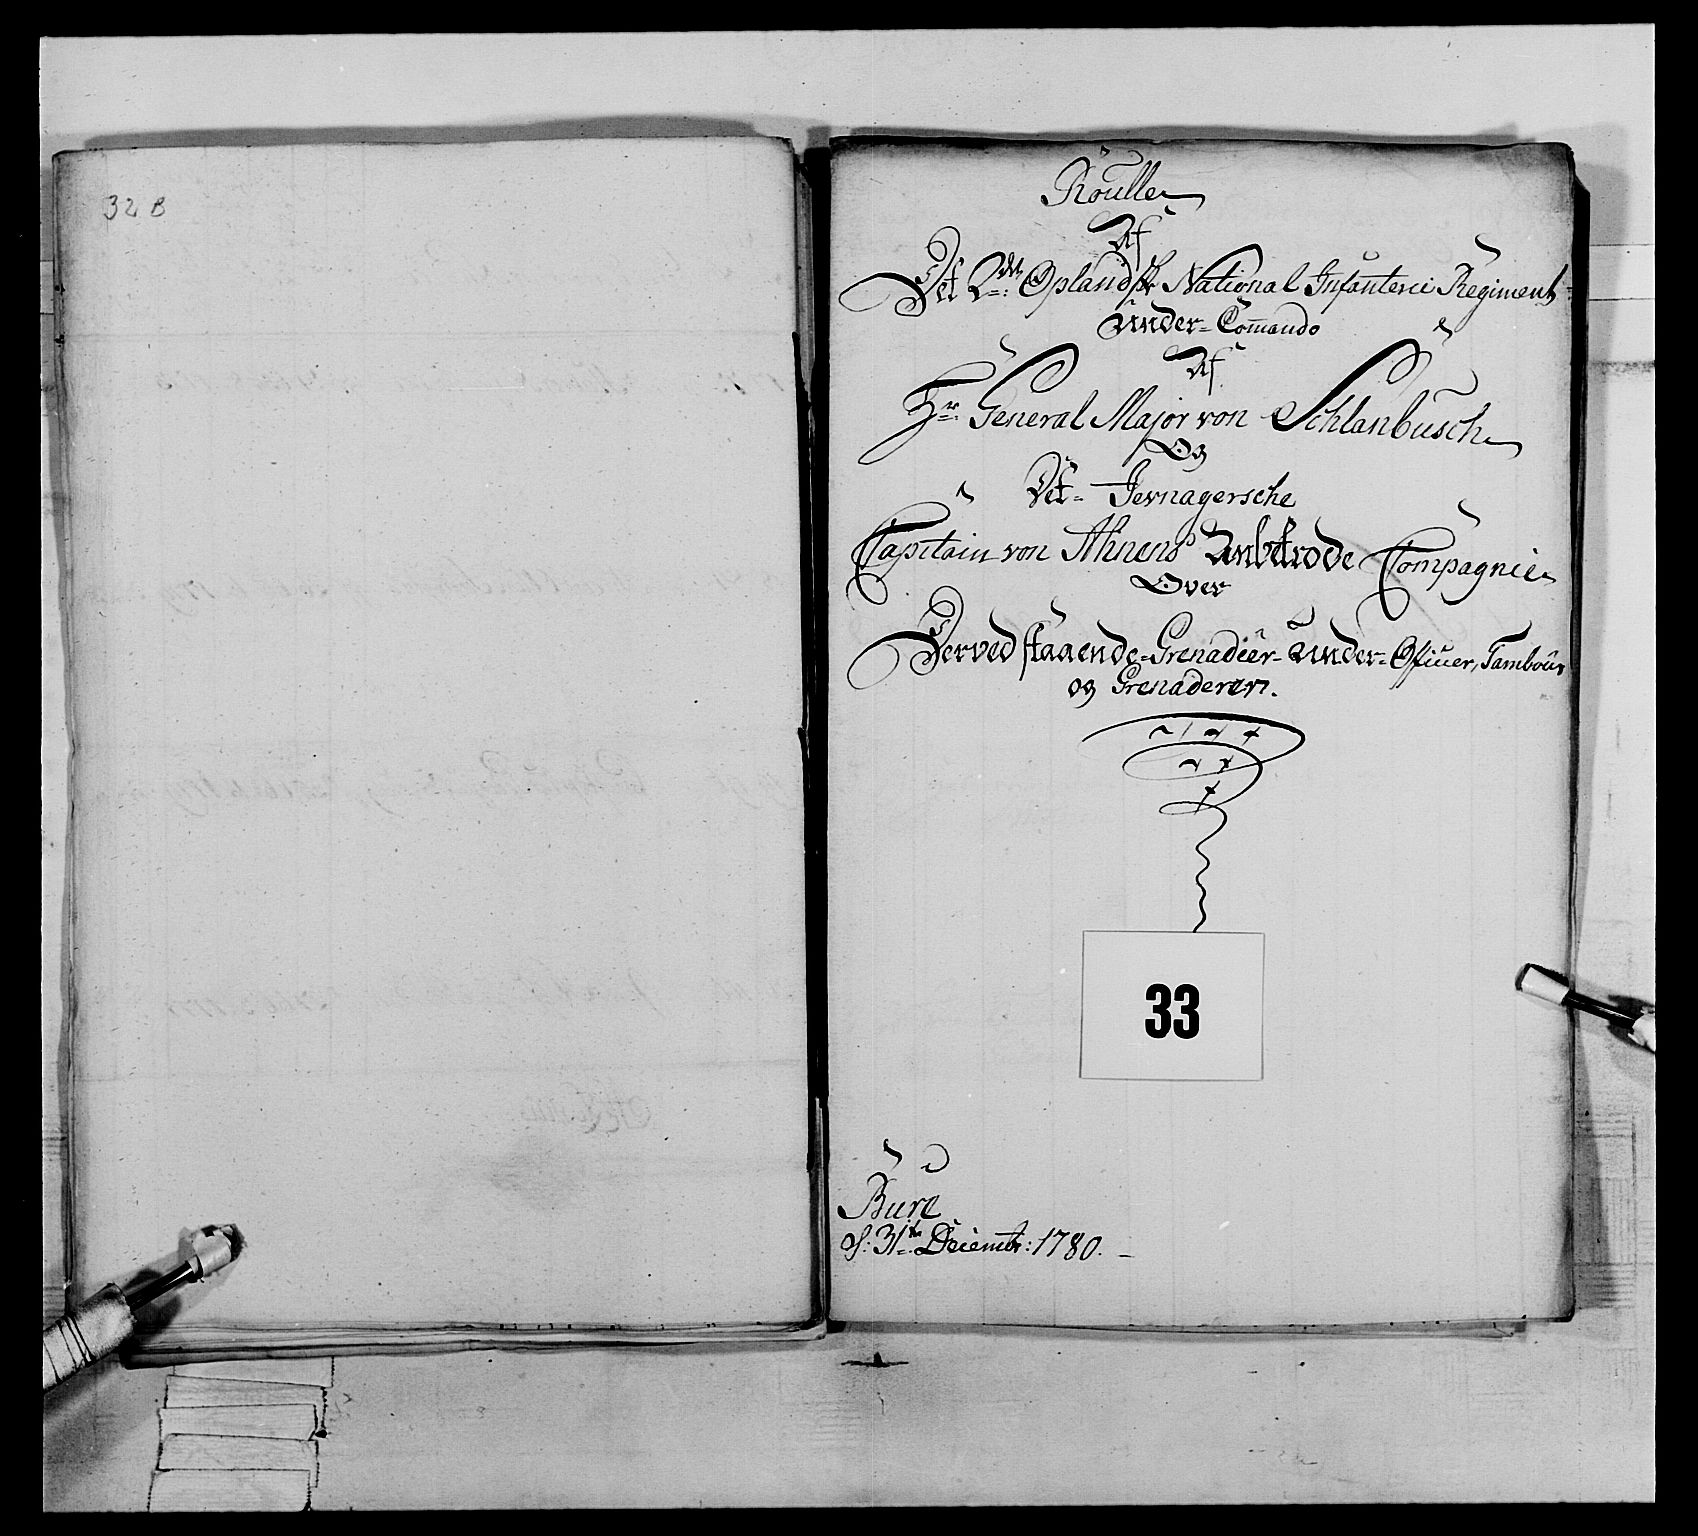 32 B
Roulle
Af
Det 2det Oplandske National Infanterie Regiment
under=Comando
Af
Hr General Major von Schlanbusch
Og
Det= Jevnagersche
Capitain von Ahnens Anbetrode Compagnie
Over
Derved staaende=Grenadeer=Under=Oficeer, Tambour
og Grenaderer.
33
Bure
d: 31te Decembr: 1780.